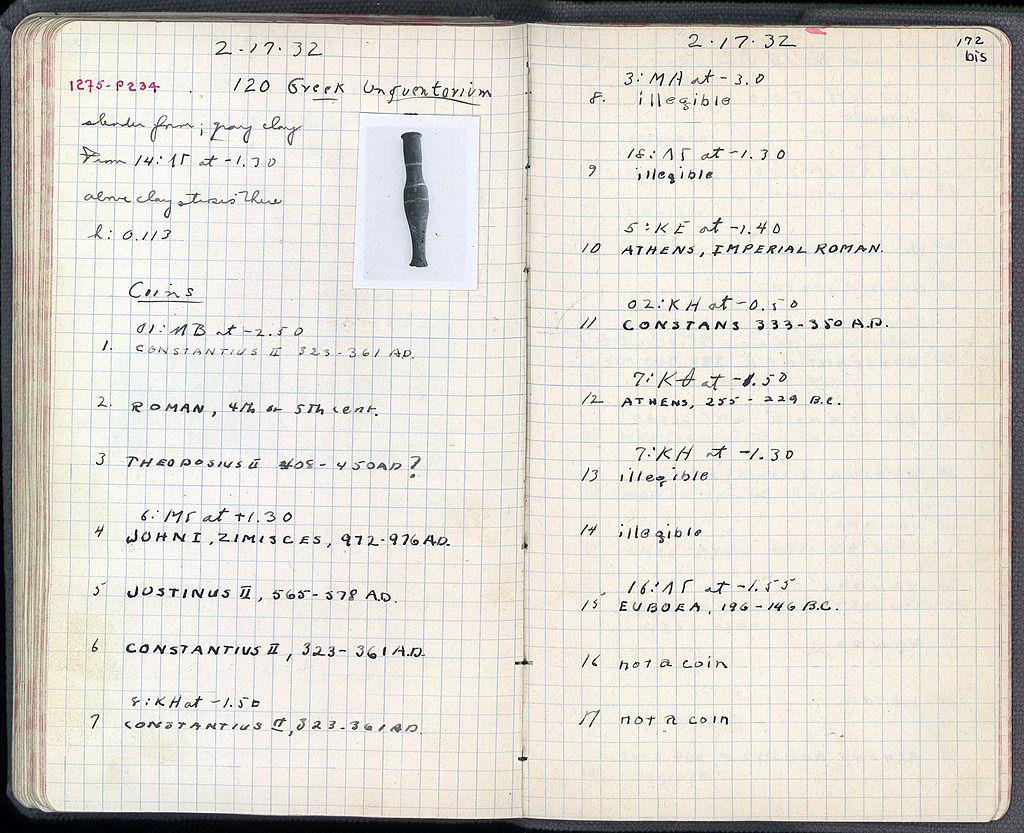 2-17-32
1275-P234 . 120 Greek Unguentorium
slender form; gray clay
From 14:ΛΓ at -1.30
above clay stosis there
h: 0.113
Coins
01:ΛB at -2.50
1. CONSTANTIUS II 323-361 AD.
2. ROMAN, 4th or 5th cent.
3 THEODOSIUS II 408-450AD?
6:MΓ at +1.30
4 JOHN I, ZIMISCES, 972-976 AD.
5 JUSTINUS II, 565-578 A.D.
6 CONSTANTIUS II, 323-361 A.D.
8:KH at -1.50
7 CONSTANTIUS II, 323-361 AD.
2-17-32
172
bis
3:MH at -3.0
8. illegible
18:ΛΓ at -1.30
9 illegible
5:KE at -1.40
10 ATHENS, IMPERIAL ROMAN.
02:KH at -0.50
11 CONSTANS 333-350 A.D.
7:KΘ at -1.50
12 ATHENS, 255-229 B.C.
7:KH at -1.30
13 illegible
14 illegible
16:ΛΓ at -1.55
15 EUBOEA, 196-146 B.C.
16 not a coin
17 not a coin